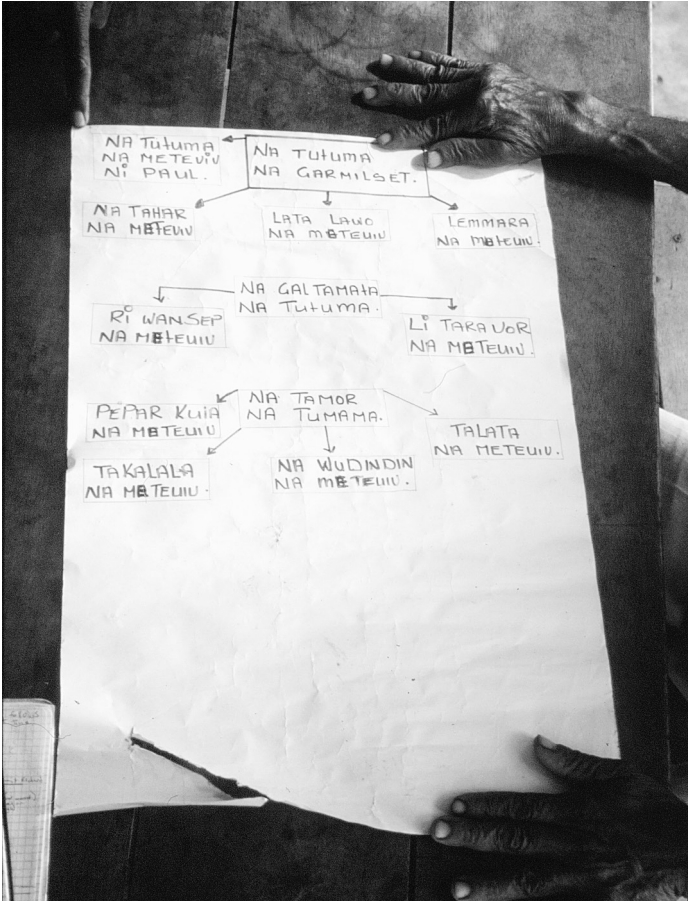 NA TUTUMA
NA METEVIV
NI PAUL.
NA TUTUMA
NA GARMILSET.
NA TAHAR
NA METEUIV
LATA LAWO
NA METEUIU
LEMMARA
NA METEUIU.
NA GALTAMATA
NA TUTUMA.
RI WANSEP
NA METEUIU
LI TARAVOR
NA METEUIU.
NA TAMOR
NA TUMAMA.
PEPAR KUIA
NA METEUIU
TALATA
NA METEUIU.
TAKALALA
NA METEUIU.
NA WUDINDIN
NA METEUIU.